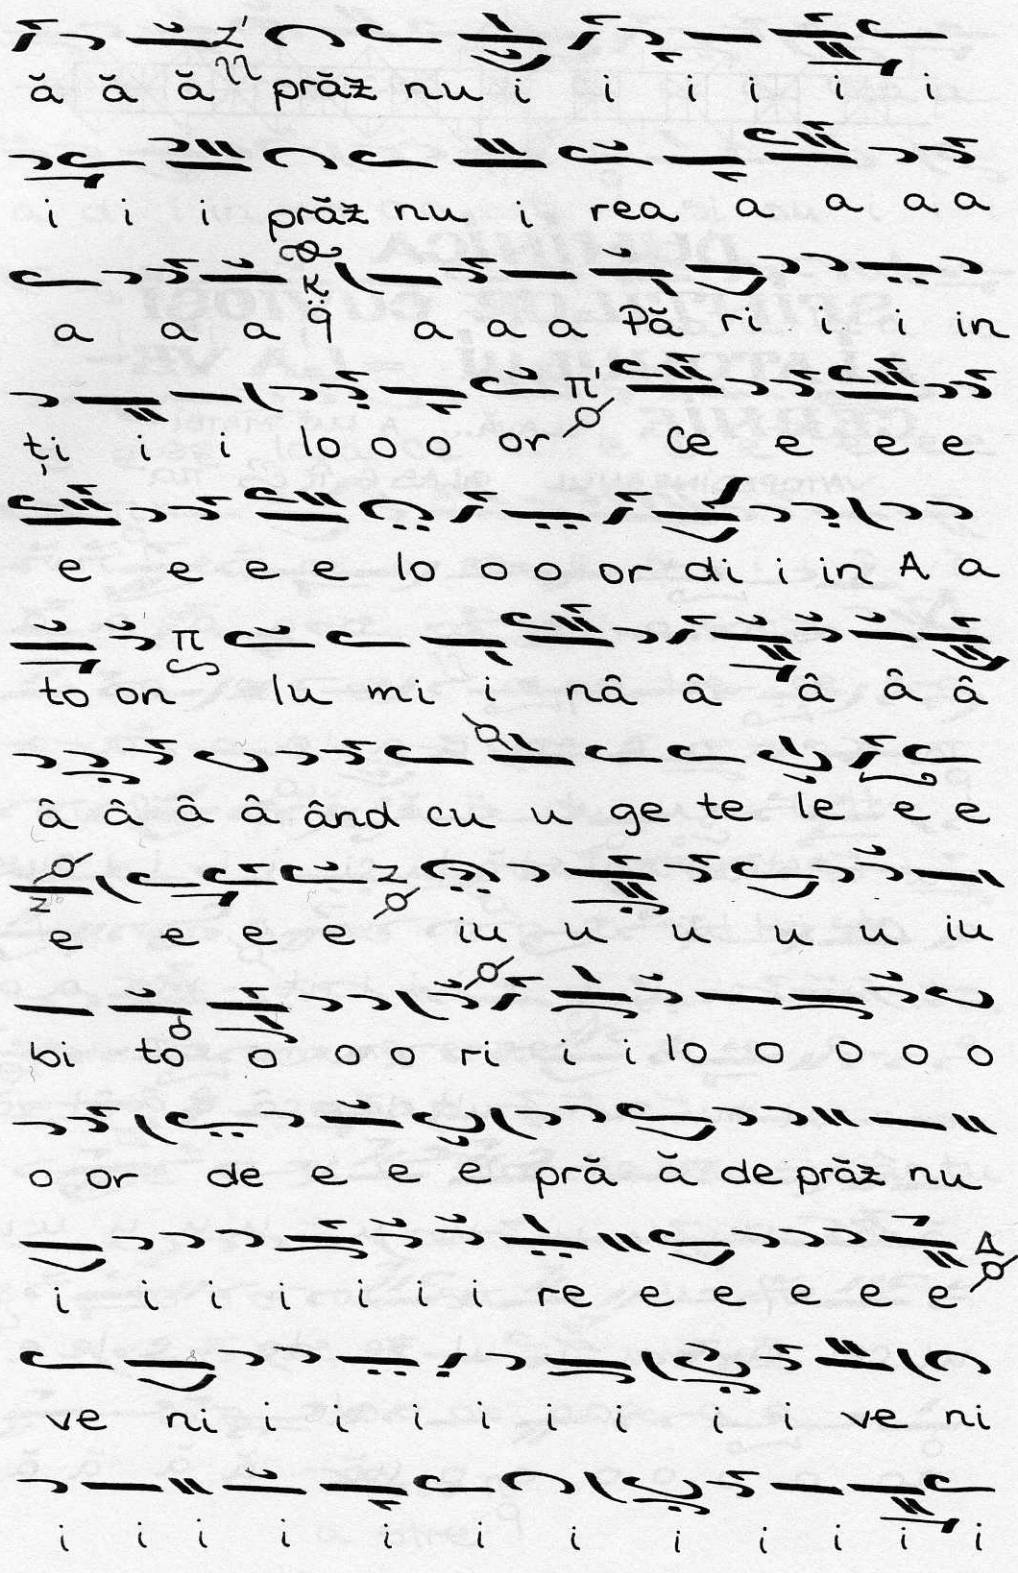 ă ă ă prăz nu i i i i i i
i i i prăz nu i rea a a a a
a a a a a a Pă ri i i in
ți i i lo o o or Ce e e e
e e e e lo o o or di i in A a
to on lu mi i nâ â â â â
â â â â ând cu u ge te le e e
e e e e iu u u u u iu
bi to o o o ri i i lo o o o o
o or de e e e pră ă de prăz nu
i i i i i i i re e e e e e
ve ni i i i i i i i i ve ni
i i i i i i i i i i i i